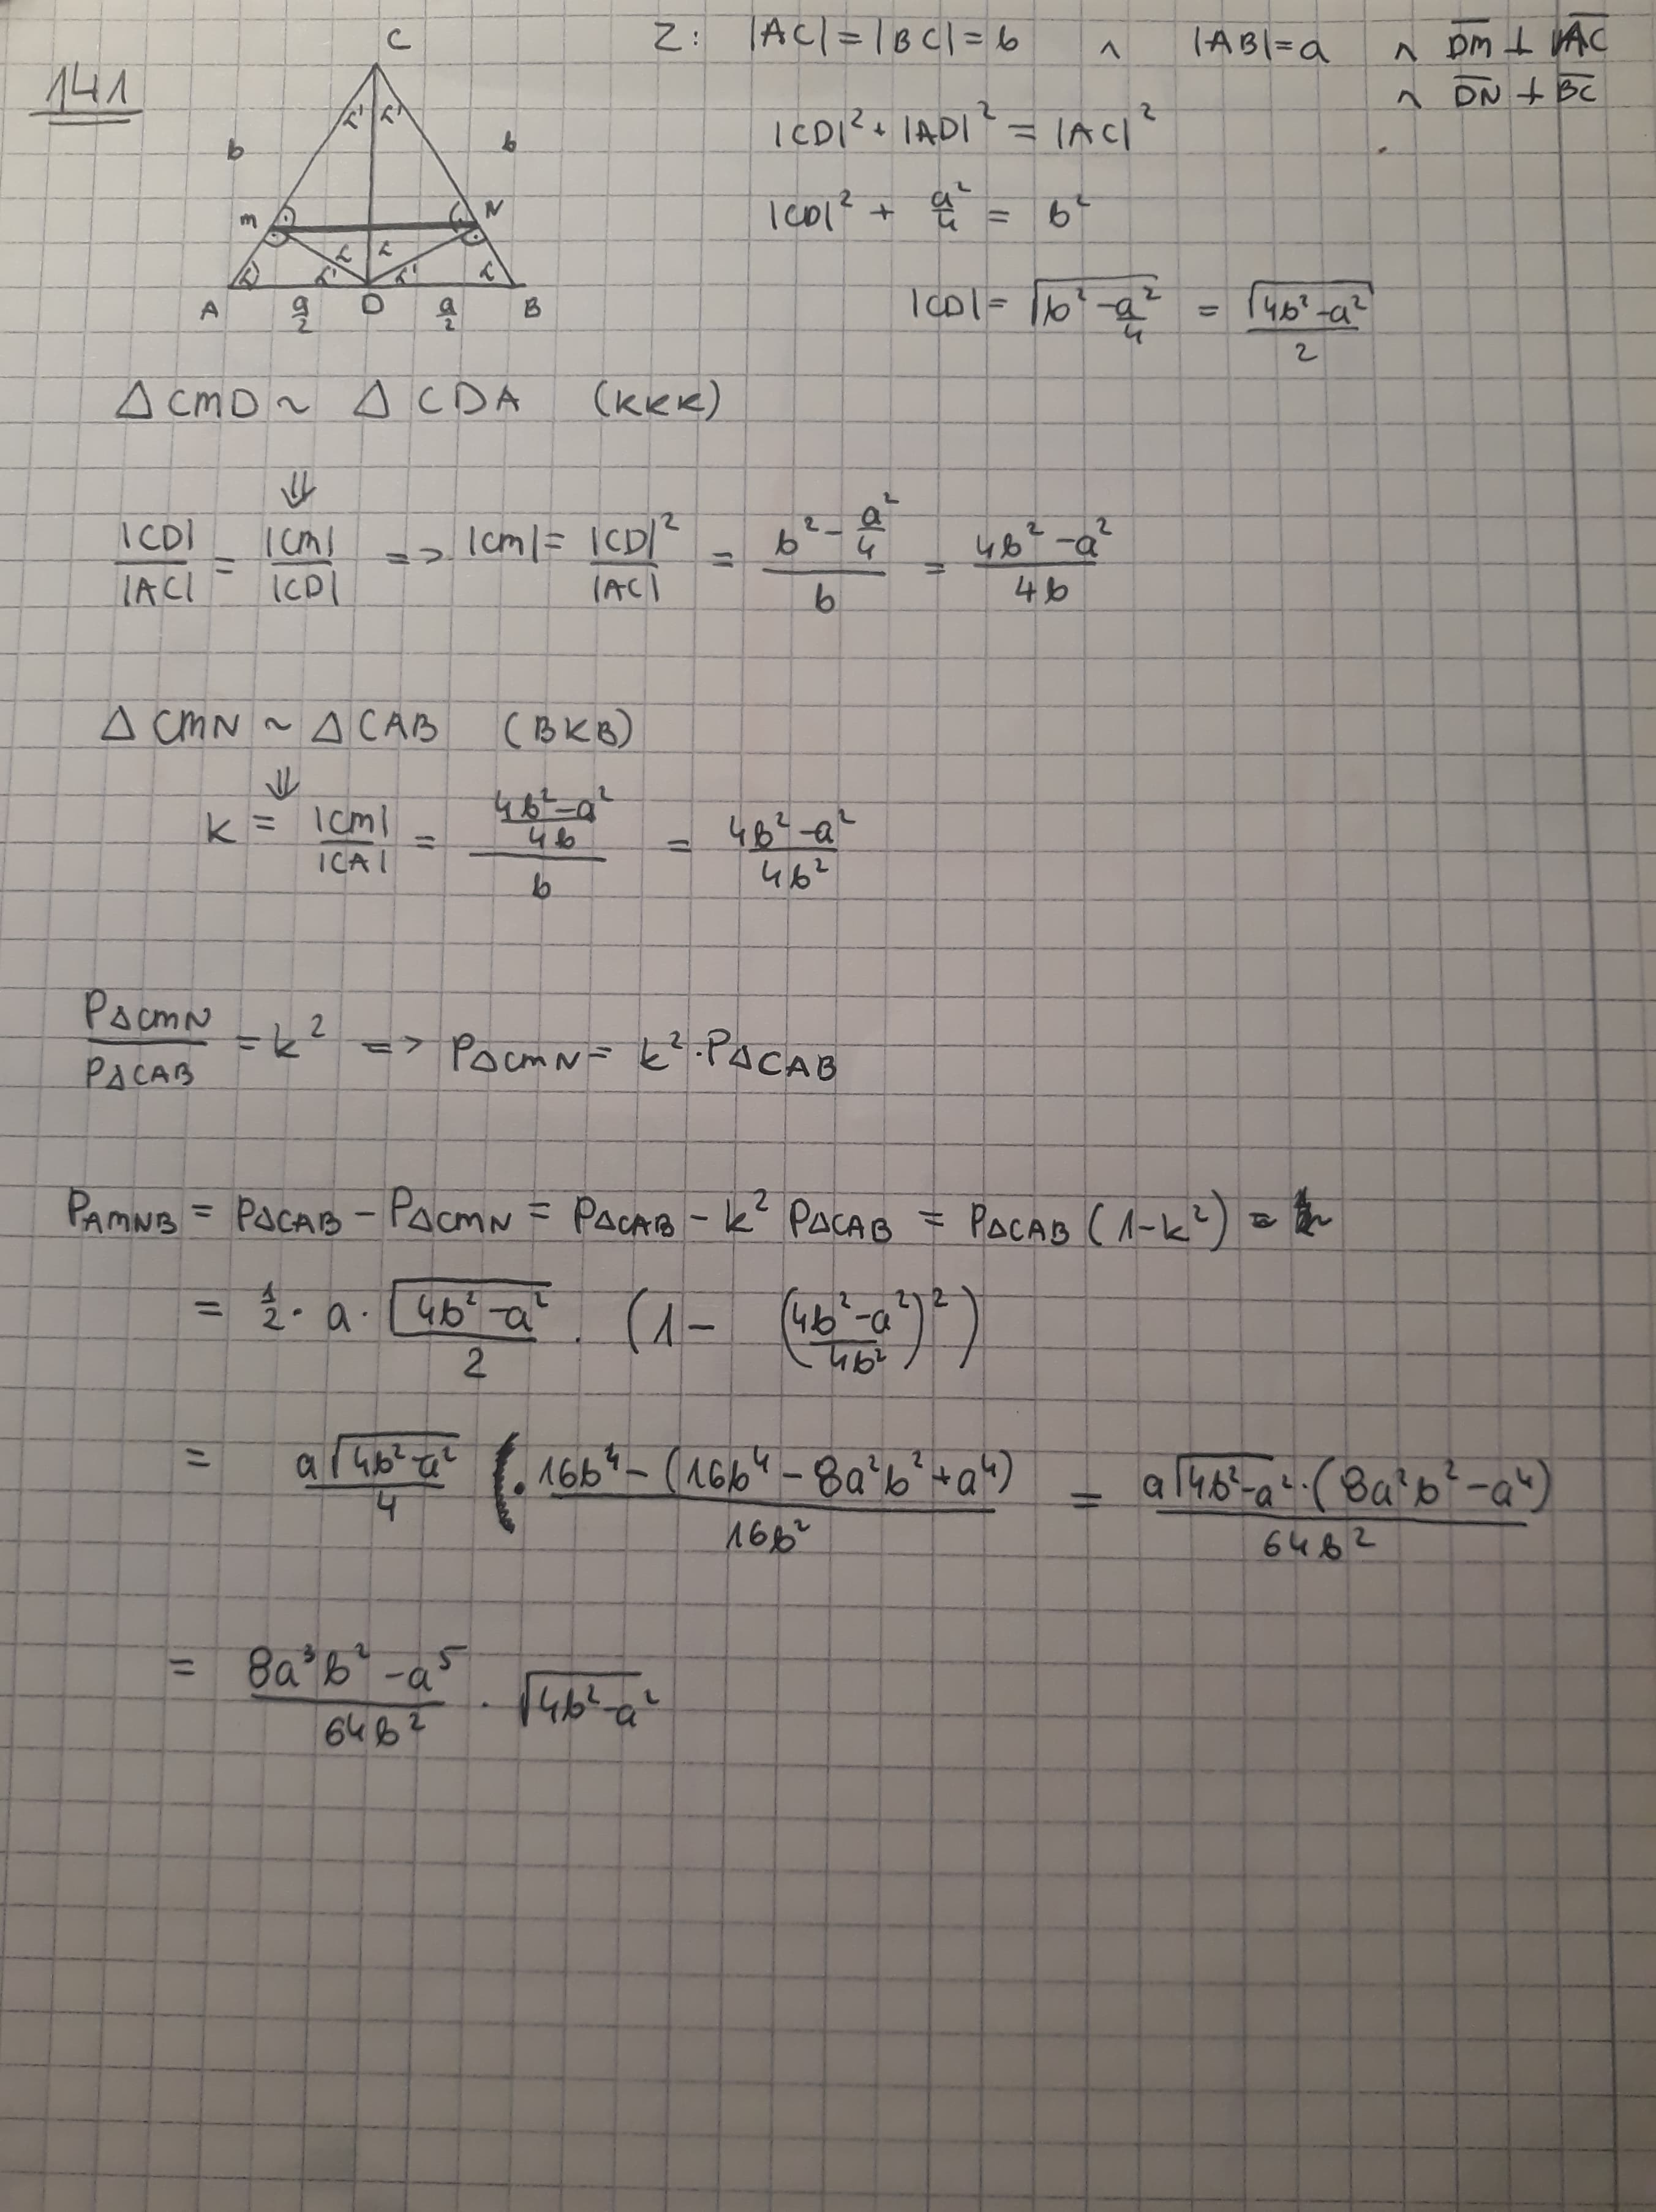 141
C
b b
M N
α' α'
α α
α α' α' α
A a/2 D a/2 B
Z: |AC| = |BC| = b ∧ |AB| = a ∧ DM ⊥ AC
∧ DN ⊥ BC
|CD|² + |AD|² = |AC|²
|CD|² + a²/4 = b²
|CD| = √(b² - a²/4) = √(4b² - a²)/2
△CMD ~ △CDA (KKK)
⇓
|CD|/|AC| = |CM|/|CD| => |CM| = |CD|²/|AC| = (b² - a²/4)/b = (4b² - a²)/4b
△CMN ~ △CAB (BKB)
⇓
k = |CM|/|CA| = ((4b² - a²)/4b)/b = (4b² - a²)/4b²
P△CMN/P△CAB = k² => P△CMN = k² · P△CAB
PAMNB = P△CAB - P△CMN = P△CAB - k² P△CAB = P△CAB (1 - k²) =
= 1/2 · a · √(4b² - a²)/2 · (1 - ((4b² - a²)/4b²)²)
= a√(4b² - a²)/4 · (16b⁴ - (16b⁴ - 8a²b² + a⁴))/16b² = a√(4b² - a²) · (8a²b² - a⁴)/64b²
= (8a³b² - a⁵)/64b² · √(4b² - a²)